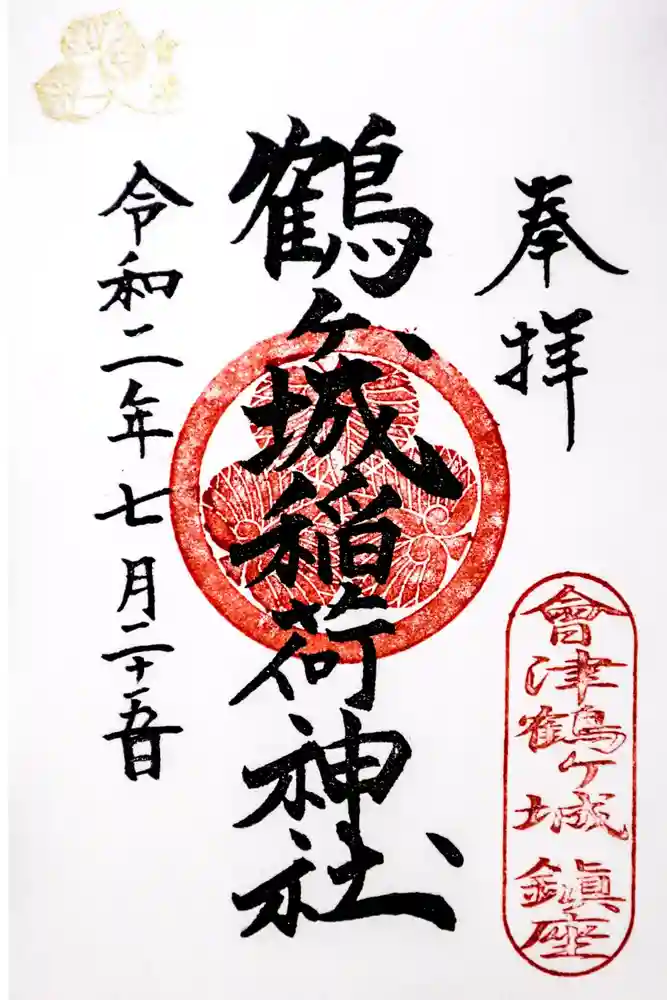 奉拝
會津鶴ケ城鎮座
鶴ヶ城稲荷神社
令和二年七月二十五日